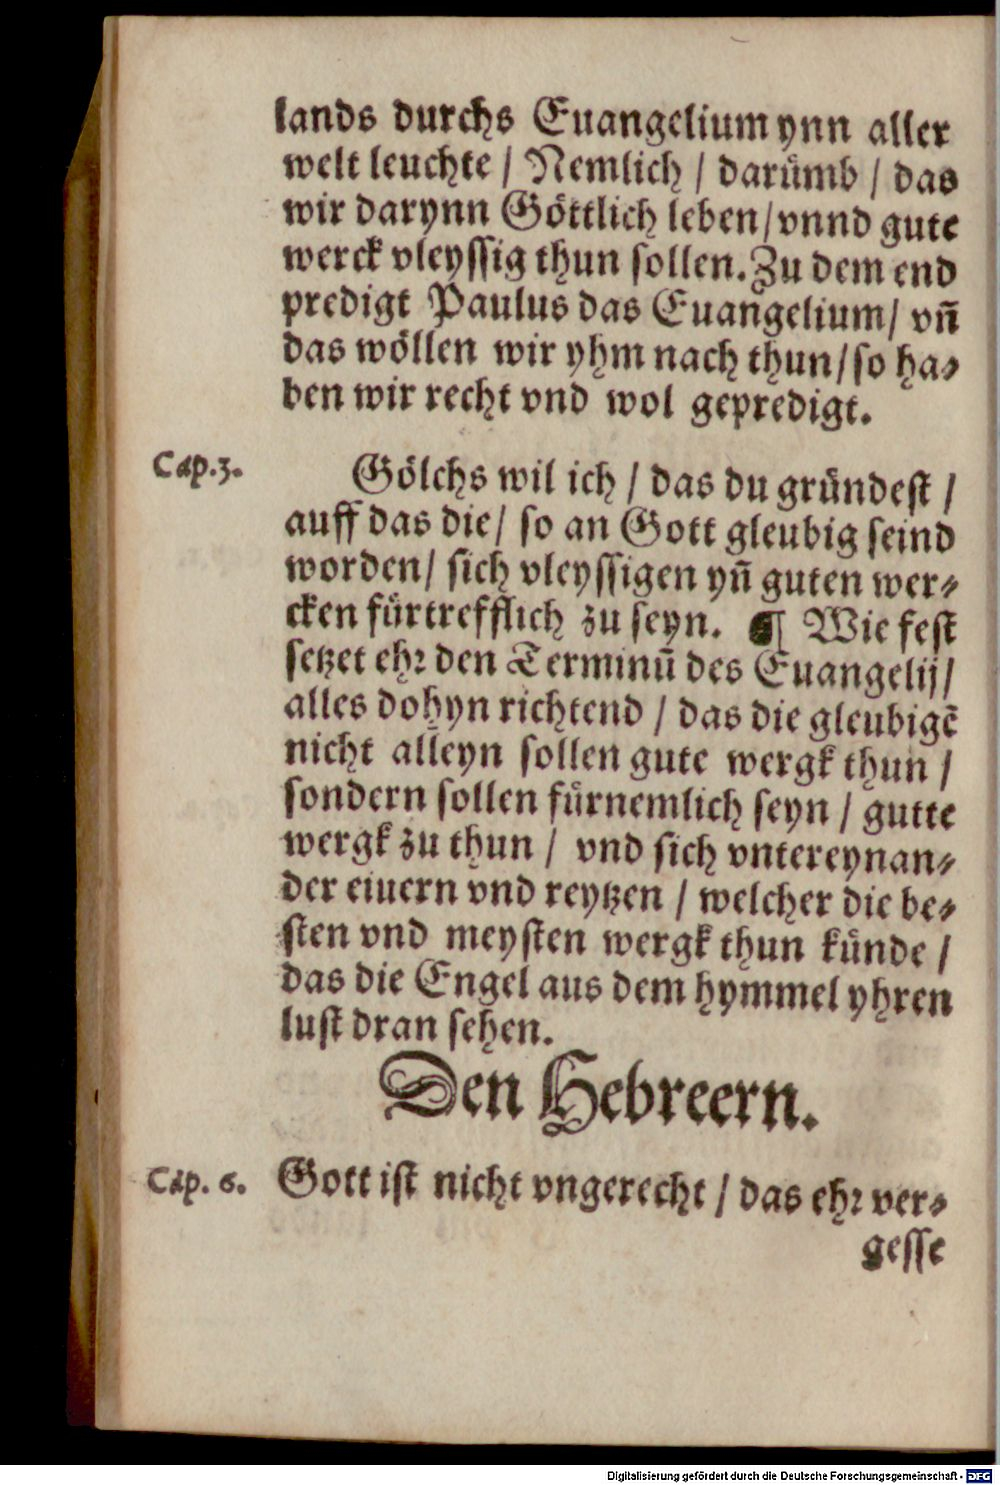 lands durchs Euangelium ynn aller
welt leuchte / Nemlich / darümb / das
wir darynn Göttlich leben / vnnd gute
werck vleyssig thun sollen. Zu dem end
predigt Paulus das Euangelium / vn̄
das wöllen wir yhm nach thun / so ha⸗
ben wir recht vnd wol gepredigt.
Cap.3.
Sölchs wil ich / das du gründest /
auff das die / so an Gott gleubig seind
worden / sich vleyssigen yn̄ guten wer⸗
cken fürtrefflich zu seyn. ¶ Wie fest
setzet ehr den Terminū des Euangelij /
alles dohyn richtend / das die gleubigē
nicht alleyn sollen gute wergk thun /
sondern sollen fürnemlich seyn / gutte
wergk zu thun / vnd sich vntereynan⸗
der eiuern vnd reytzen / welcher die be⸗
sten vnd meysten wergk thun künde /
das die Engel aus dem hymmel yhren
lust dran sehen.
Den Hebreern.
Cap. 6.
Gott ist nicht vngerecht / das ehr ver⸗
gesse
Digitalisierung gefördert durch die Deutsche Forschungsgemeinschaft - DFG